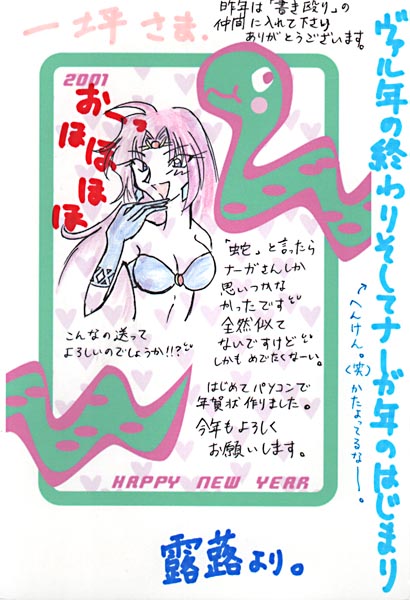 一坪さま.
昨年は「書き殴り」の
仲間に入れて下さり
ありがとうございます。
2001
おーっ
ほ
ほ
ほ
ほ
ヴァル年の終わりそしてナーガ年のはじまり
へんけん。(笑)かたよってるなー。
「蛇」と言ったら
ナーガさんしか
思いつかな
かったです
全然似て
ないですけど
しかもめでたくなーい。
こんなの送って
よろしいのでしょうか!!?
はじめてパソコンで
年賀状作りました。
今年もよろしく
お願いします。
HAPPY NEW YEAR
露蕗より。